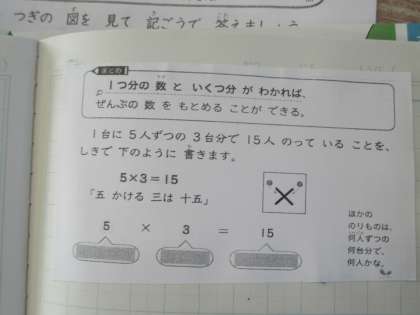 つぎの 図を 見て 記ごうで 答えましょう
まとめ
1つ分の 数 と いくつ分 が わかれば、
ぜんぶの 数 を もとめる ことが できる。
1台に 5人ずつの 3台分で 15人 のって いる ことを、
しきで 下のように 書きます。
5×3=15
「五 かける 三は 十五」
×
5 × 3 = 15
ほかの
のりものは、
何人ずつの
何台分で、
何人かな。